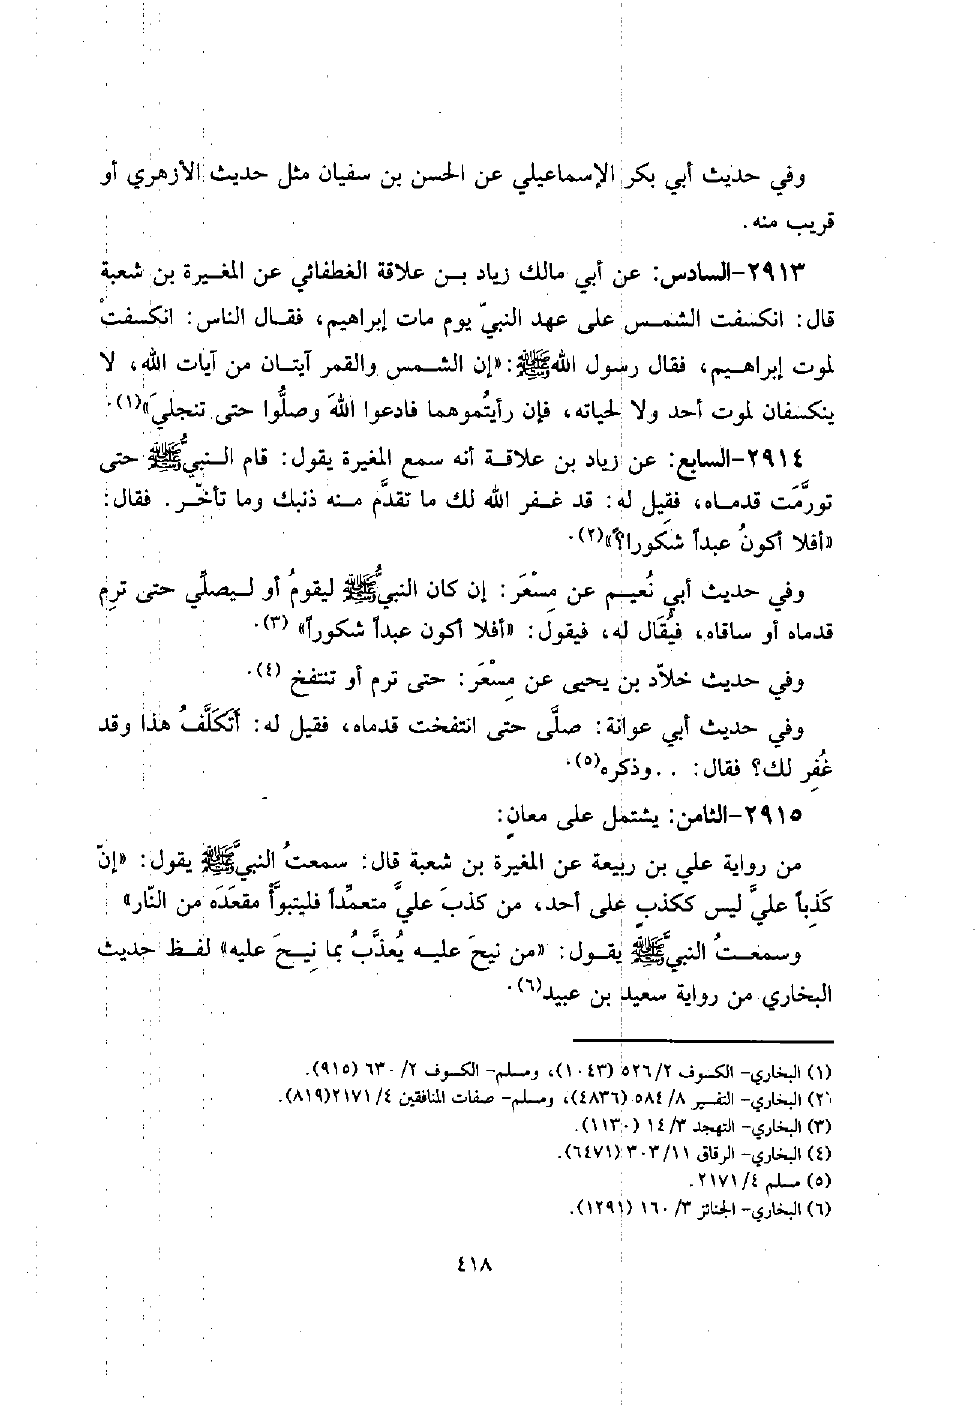 وفي حديث أبي بكر الإسماعيلي عن الحسن بن سفيان مثل حديث الأزهري أو
قريب منه.
٢٩١٣-السادس: عن أبي مالك زياد بن علاقة الغطفاني عن المغيرة بن شعبة
قال: انكسفت الشمس على عهد النبيّ يوم مات إبراهيم، فقال الناس: انكسفتْ
لموت إبراهيم، فقال رسول الله ﷺ: «إن الشمس والقمر آيتان من آيات الله، لا
ينكسفان لموت أحد ولا لحياته، فإن رأيتُموهما فادعوا اللهَ وصلُّوا حتى تنجليَ»(١).
٢٩١٤-السابع: عن زياد بن علاقة أنه سمع المغيرة يقول: قام النبيُّ ﷺ حتى
تورَّمَت قدماه، فقيل له: قد غفر الله لك ما تقدَّم منه ذنبك وما تأخّر. فقال:
«أفلا أكونُ عبداً شكورا؟»(٢).
وفي حديث أبي نُعيم عن مِسْعَر: إن كان النبيُّ ﷺ ليقومُ أو ليصلِّي حتى ترِم
قدماه أو ساقاه، فيُقال له، فيقول: «أفلا أكون عبداً شكوراً» (٣).
وفي حديث خلاّد بن يحيى عن مِسْعَر: حتى ترم أو تنتفخ (٤).
وفي حديث أبي عوانة: صلَّى حتى انتفخت قدماه، فقيل له: أتَكَلَّفُ هذا وقد
غُفِر لك؟ فقال: ..وذكره(٥).
٢٩١٥-الثامن: يشتمل على معانٍ:
من رواية علي بن ربيعة عن المغيرة بن شعبة قال: سمعتُ النبيَّ ﷺ يقول: «إنّ
كَذِباً عليَّ ليس ككذبٍ على أحد، من كذبَ عليَّ متعمِّداً فليتبوَّأْ مقعَدَه من النّار»
وسمعتُ النبيَّ ﷺ يقول: «من نيحَ عليه يُعذَّبُ بما نِيحَ عليه» لفظ حديث
البخاري من رواية سعيد بن عبيد(٦).
(١) البخاري- الكسوف ٥٢٦/٢ (١٠٤٣)، ومسلم- الكسوف ٦٣٠/٢ (٩١٥).
(٢) البخاري- التفسير ٥٨٤/٨ (٤٨٣٦)، ومسلم- صفات المنافقين ٢١٧١/٤(٨١٩).
(٣) البخاري- التهجد ١٤/٣ (١١٣٠).
(٤) البخاري- الرقاق ٣٠٣/١١ (٦٤٧١).
(٥) مسلم ٢١٧١/٤.
(٦) البخاري- الجنائز ١٦٠/٣ (١٢٩١).
٤١٨